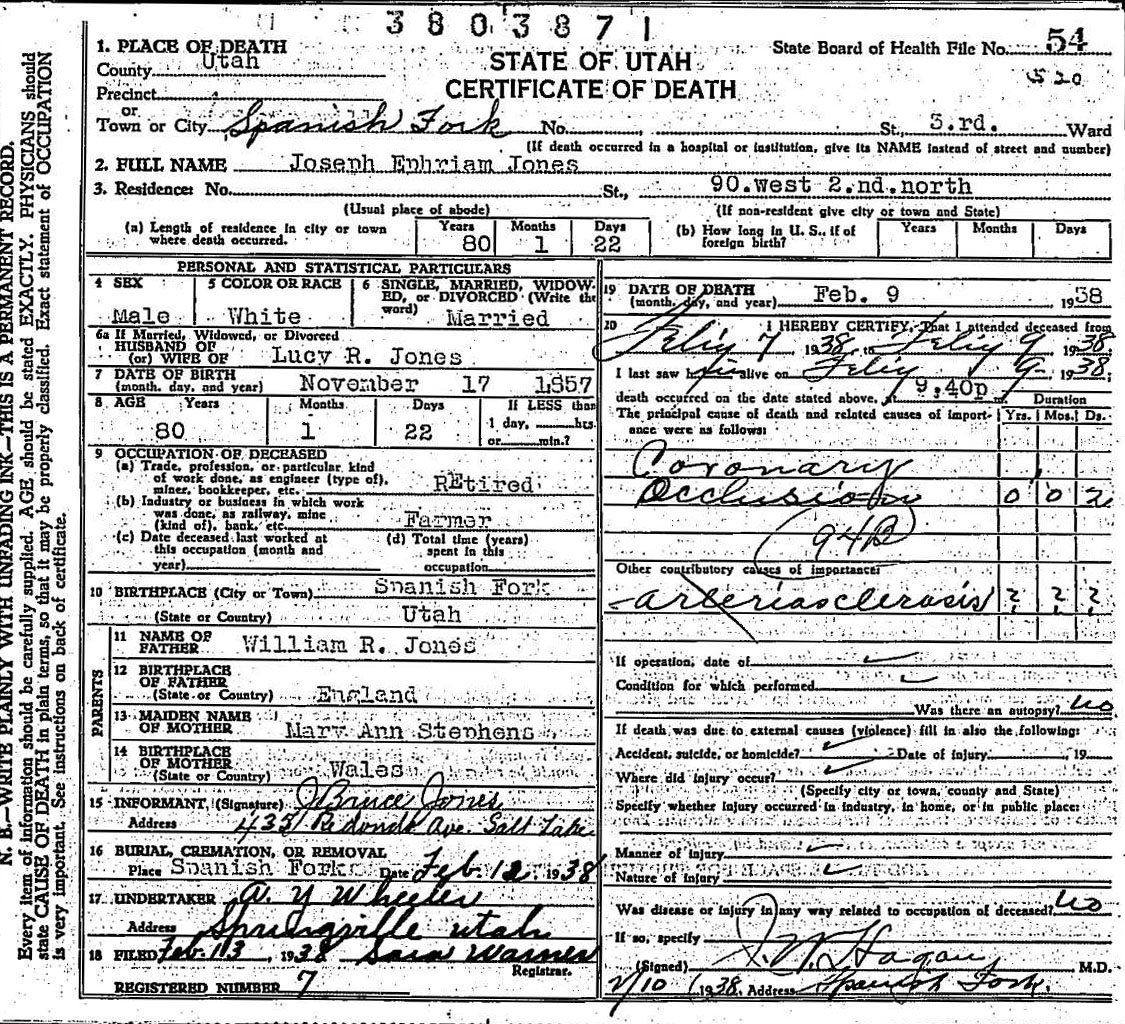 3803871
1. PLACE OF DEATH
County Utah
STATE OF UTAH
CERTIFICATE OF DEATH
State Board of Health File No. 54
520
Precinct
or
Town or City Spanish Fork No. St., 3.rd. Ward
(If death occurred in a hospital or institution, give its NAME instead of street and number)
2. FULL NAME Joseph Ephriam Jones
3. Residence: No. St., 90.west 2.nd.north
(Usual place of abode) (If non-resident give city or town and State)
(a) Length of residence in city or town where death occurred. Years 80 Months 1 Days 22
(b) How long in U. S., if of foreign birth? Years Months Days
PERSONAL AND STATISTICAL PARTICULARS
4 SEX Male
5 COLOR OR RACE White
6 SINGLE, MARRIED, WIDOWED, or DIVORCED (Write the word) Married
6a If Married, Widowed, or Divorced
HUSBAND OF
(or) WIFE OF Lucy R. Jones
7 DATE OF BIRTH
(month, day, and year) November 17 1857
8 AGE Years Months Days If LESS than
80 1 22 1 day, hrs.
or min.?
9 OCCUPATION OF DECEASED
(a) Trade, profession, or particular kind
of work done, as engineer (type of),
miner, bookkeeper, etc. REtired
(b) Industry or business in which work
was done, as railway, mine
(kind of), bank, etc. Farmer
(c) Date deceased last worked at
this occupation (month and
year)
(d) Total time (years)
spent in this
occupation
10 BIRTHPLACE (City or Town) Spanish Fork
(State or Country) Utah
PARENTS
11 NAME OF
FATHER William R. Jones
12 BIRTHPLACE
OF FATHER
(State or Country) England
13 MAIDEN NAME
OF MOTHER Mary Ann Stephens
14 BIRTHPLACE
OF MOTHER
(State or Country) Wales
15 INFORMANT, (Signature) J Bruce Jones
Address 435 Redondo Ave. Salt Lake
16 BURIAL, CREMATION, OR REMOVAL
Place Spanish Fork Date Feb. 12, 1938
17 UNDERTAKER A. Y Wheeler
Address Springville Utah
18 FILED Feb. 13, 1938 Sara Warner
Registrar.
REGISTERED NUMBER 7
19 DATE OF DEATH
(month, day, and year) Feb. 9 1938
20 I HEREBY CERTIFY, That I attended deceased from
Feby 7 1938, to Feby 9 1938
I last saw him alive on Feby 9 1938;
death occurred on the date stated above, 9.40p
The principal cause of death and related causes of importance were as follows:
Duration
Yrs. Mos. Ds.
Coronary
Occlusion 0 0 2
94B
Other contributory causes of importance:
Arteriasclerosis ? ? ?
If operation, date of
Condition for which performed
Was there an autopsy? no
If death was due to external causes (violence) fill in also the following:
Accident, suicide, or homicide? Date of injury 19
Where did injury occur?
(Specify city or town, county and State)
Specify whether injury occurred in industry, in home, or in public place:
Manner of injury
Nature of injury
Was disease or injury in any way related to occupation of deceased? no
If so, specify
(Signed) J. W. Hagan M.D.
2/10 1938, Address Spanish Fork.
N. B.—WRITE PLAINLY WITH UNFADING INK—THIS IS A PERMANENT RECORD.
Every item of information should be carefully supplied. AGE should be stated EXACTLY. PHYSICIANS should
state CAUSE OF DEATH in plain terms, so that it may be properly classified. Exact statement of OCCUPATION
is very important. See instructions on back of certificate.